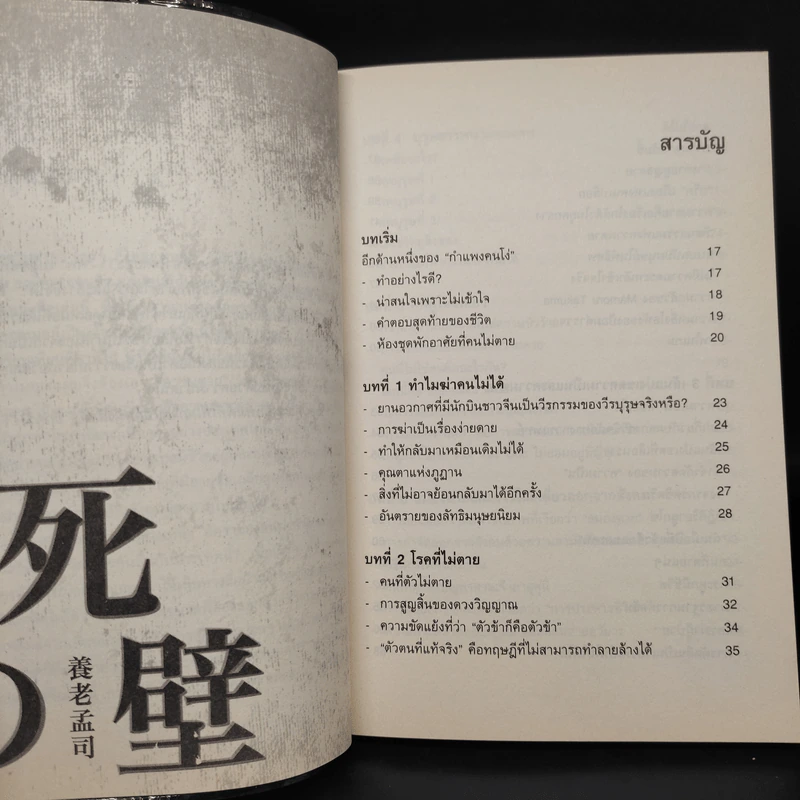 死
の
壁
養老孟司
สารบัญ
บทเริ่ม
อีกด้านหนึ่งของ “กำแพงคนโง่” 17
- ทำอย่างไรดี? 17
- น่าสนใจเพราะไม่เข้าใจ 18
- คำตอบสุดท้ายของชีวิต 19
- ห้องชุดพักอาศัยที่คนไม่ตาย 20
บทที่ 1 ทำไมฆ่าคนไม่ได้
- ยานอวกาศที่มีนักบินชาวจีนเป็นวีรกรรมของวีรบุรุษจริงหรือ? 23
- การฆ่าเป็นเรื่องง่ายดาย 24
- ทำให้กลับมาเหมือนเดิมไม่ได้ 25
- คุณตาแห่งภูฏาน 26
- สิ่งที่ไม่อาจย้อนกลับมาได้อีกครั้ง 27
- อันตรายของลัทธิมนุษยนิยม 28
บทที่ 2 โรคที่ไม่ตาย
- คนที่ตัวไม่ตาย 31
- การสูญสิ้นของดวงวิญญาณ 32
- ความขัดแย้งที่ว่า “ตัวข้าก็คือตัวข้า” 34
- “ตัวตนที่แท้จริง” คือทฤษฎีที่ไม่สามารถทำลายล้างได้ 35